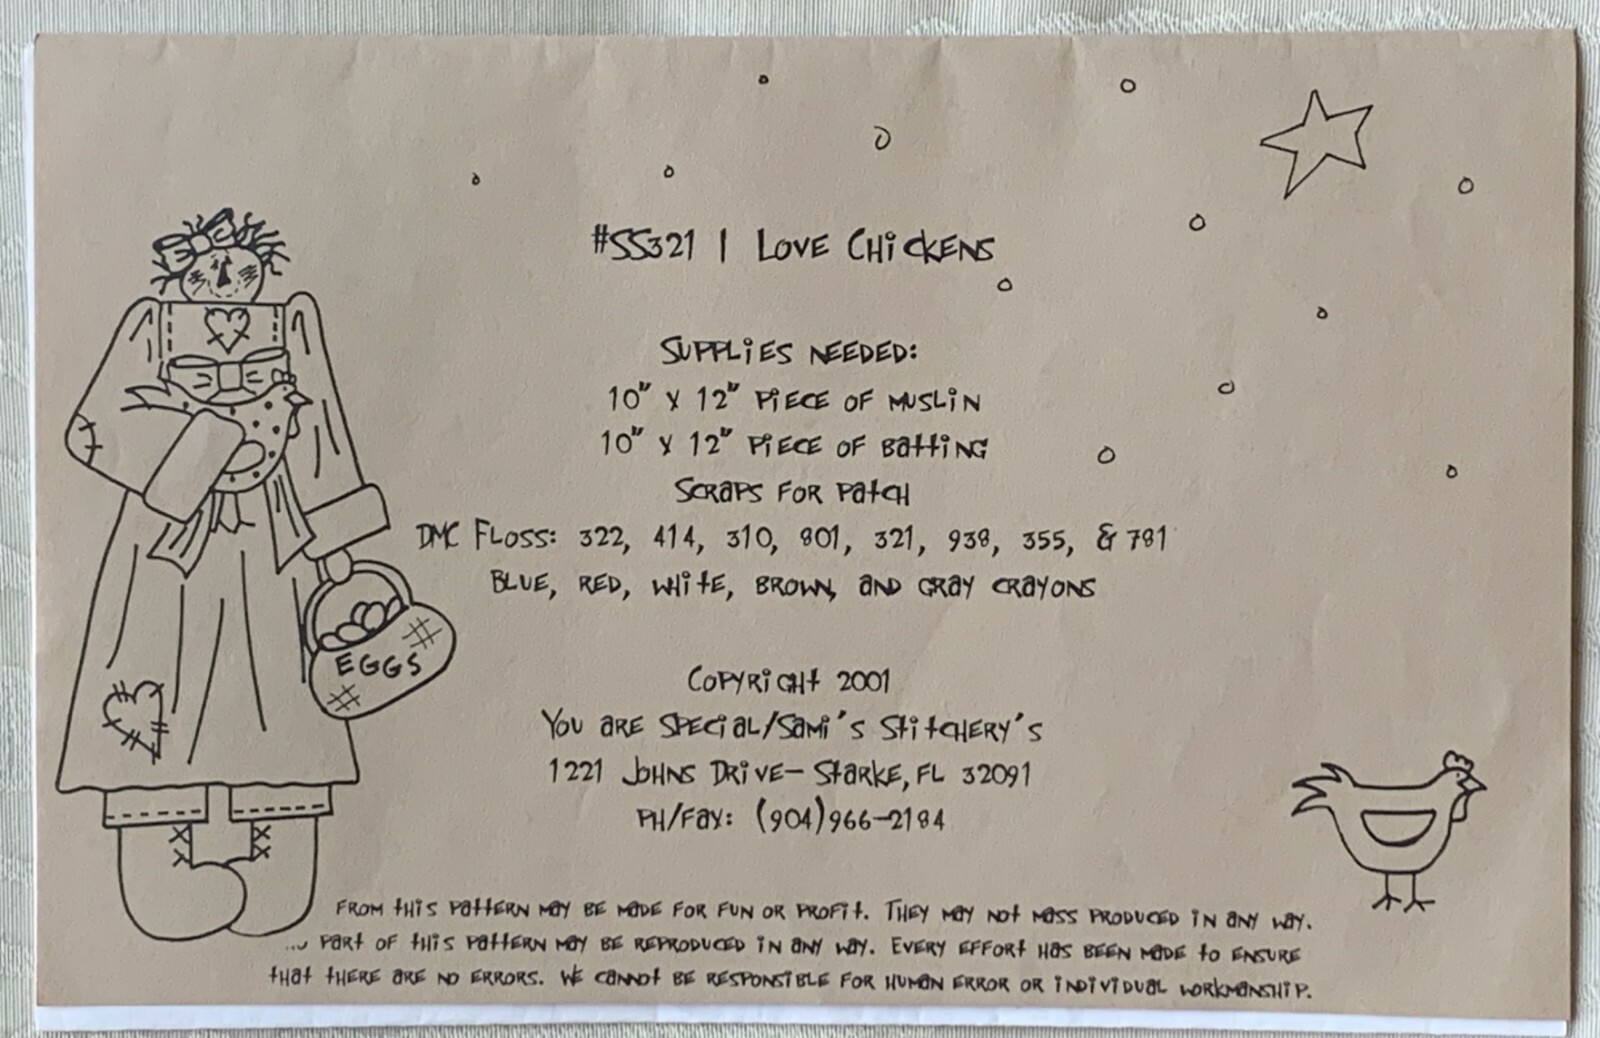 #SS321 I Love Chickens
Supplies Needed:
10" x 12" piece of muslin
10" x 12" piece of batting
Scraps for patch
DMC Floss: 322, 414, 310, 801, 321, 938, 355, & 781
Blue, red, white, brown, and gray crayons
EGGS
Copyright 2001
You are Special/Sami's Stitchery's
1221 Johns Drive- Starke, FL 32091
PH/Fax: (904)966-2184
from this pattern may be made for fun or profit. They may not mass produced in any way.
part of this pattern may be reproduced in any way. Every effort has been made to ensure
that there are no errors. We cannot be responsible for human error or individual workmanship.